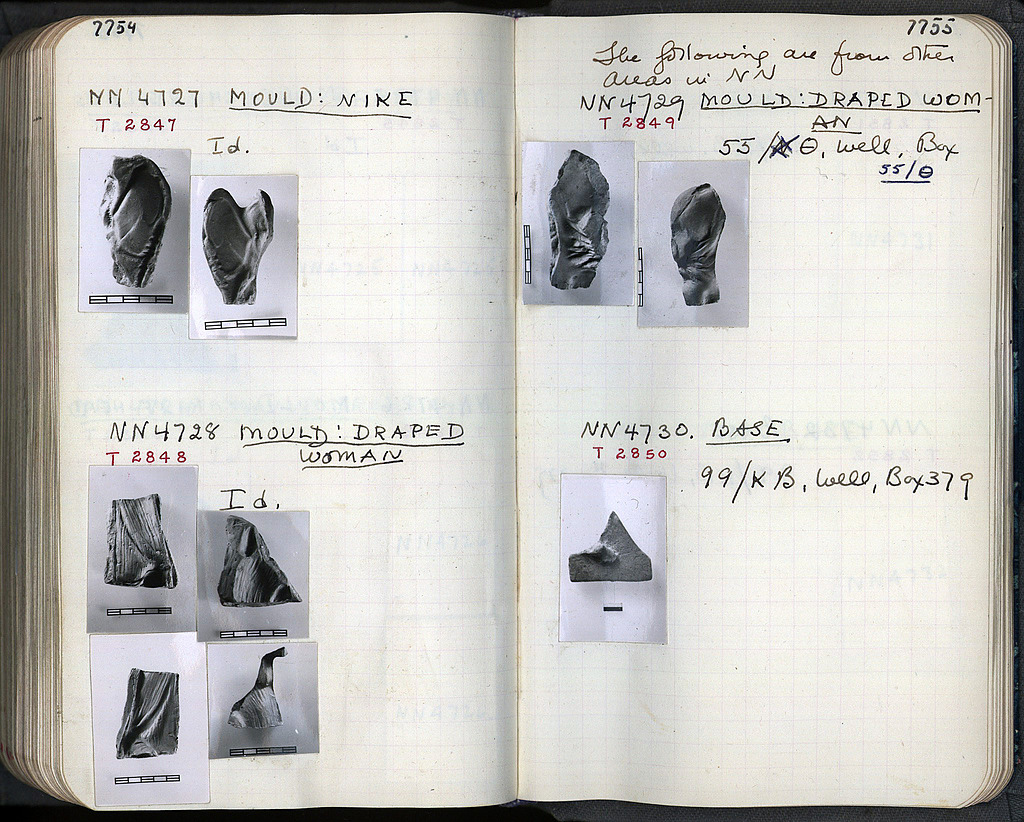 7754
NN 4727 MOULD: NIKE
T 2847
Id.
NN4728 MOULD: DRAPED
WOMAN
T 2848
Id.
7755
The following are from other
areas in NN
NN4729 MOULD: DRAPED WOM-
AN
T 2849
55/Θ, Well, Box
55/Θ
NN4730. BASE
T 2850
99/K B, Well, Box 379